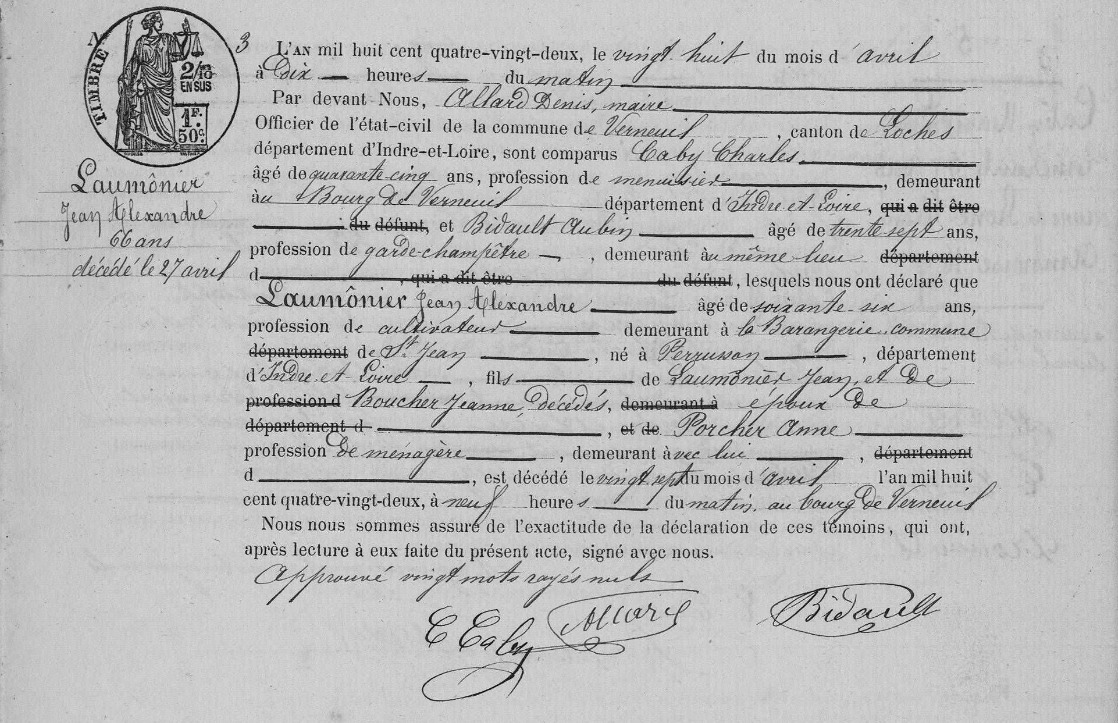 N 3
TIMBRE
2/10
EN SUS
1F.
50c.
Laumônier
Jean Alexandre
66 ans
décédé le 27 avril
L'AN mil huit cent quatre-vingt-deux, le vingt huit du mois d'avril
à Dix heures du matin
Par devant Nous, Allard Denis, maire
Officier de l'état-civil de la commune de Verneuil, canton de Loches
département d'Indre-et-Loire, sont comparus Caby Charles
âgé de quarante-cinq ans, profession de menuisier, demeurant
au Bourg de Verneuil département d'Indre et Loire, qui a dit être
du défunt, et Bidault Aubin âgé de trente sept ans,
profession de garde-champêtre, demeurant au même lieu département
d , qui a dit être du défunt, lesquels nous ont déclaré que
Laumônier Jean Alexandre âgé de soixante-six ans,
profession de cultivateur demeurant à la Barangerie commune
département de St Jean, né à Perrusson, département
d'Indre et Loire, fils de Laumônier Jean, et De
profession d Boucher Jeanne, décédés, demeurant à époux De
département d , et de Porcher Anne
profession De ménagère, demeurant avec lui, département
d , est décédé le vingt sept du mois d'avril l'an mil huit
cent quatre-vingt-deux, à neuf heures du matin, au bourg de Verneuil
Nous nous sommes assuré de l'exactitude de la déclaration de ces témoins, qui ont,
après lecture à eux faite du présent acte, signé avec nous.
Approuvé vingt mots rayés nuls
C Caby Allard Bidault